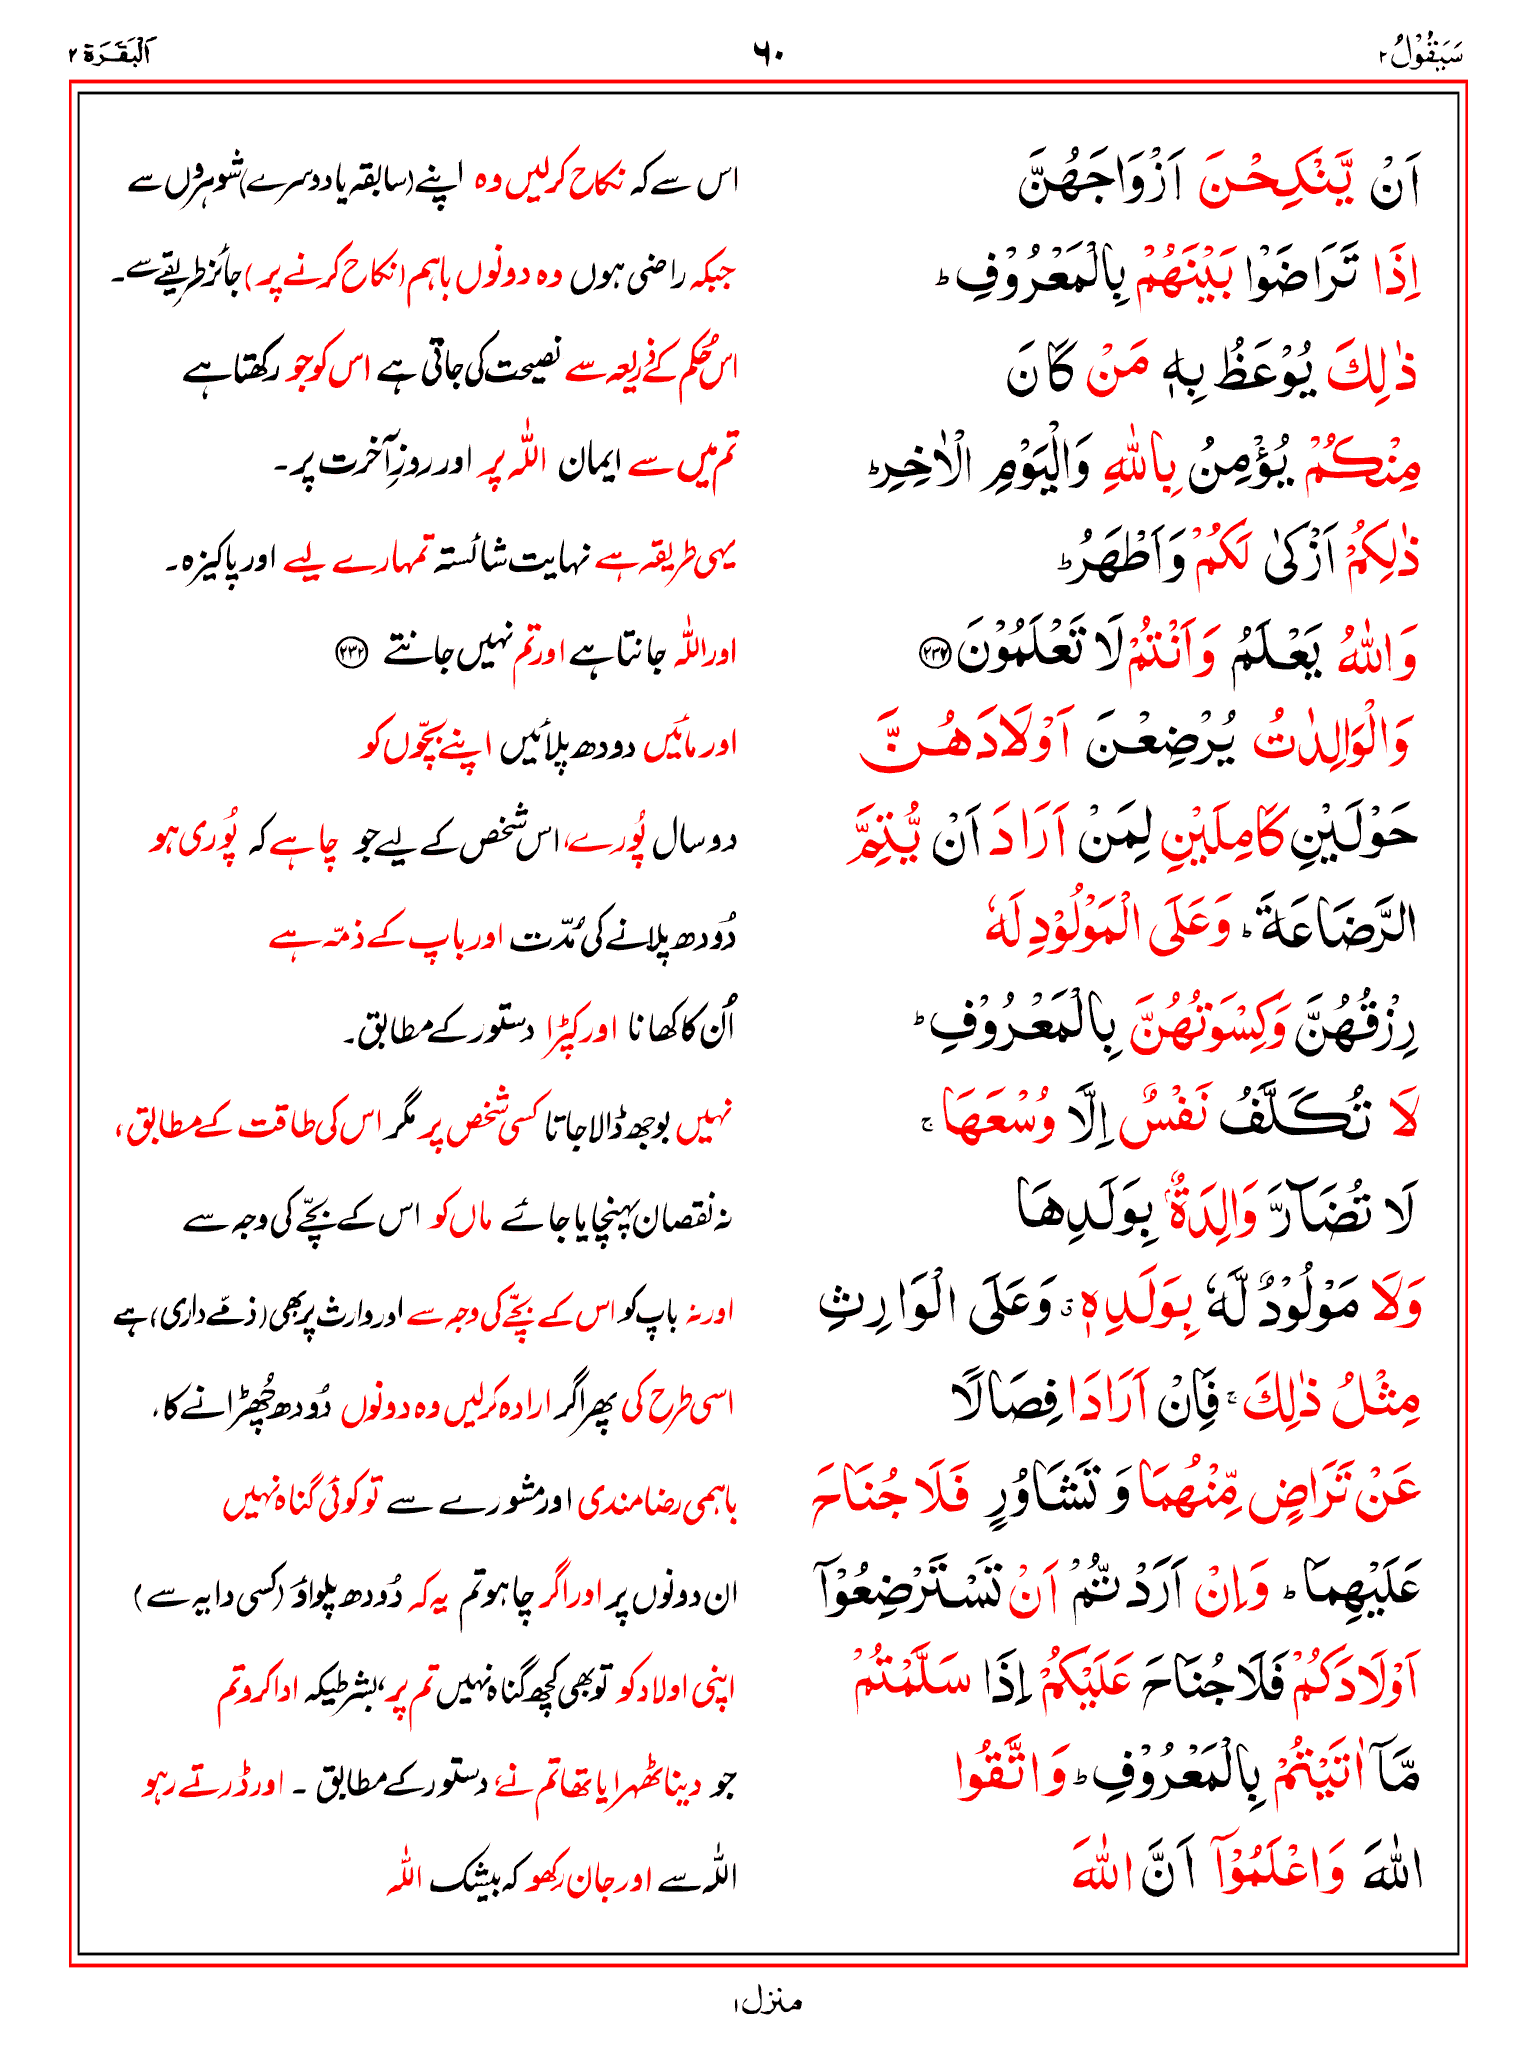 سَيَقُوْلُ ٢ ٦٠ اَلْبَقَرَة ٢
اَنْ يَّنْكِحْنَ اَزْوَاجَهُنَّ اس سے کہ نکاح کرلیں وہ اپنے (سابقہ یا دوسرے) شوہروں سے
اِذَا تَرَاضَوْا بَيْنَهُمْ بِالْمَعْرُوْفِ ؕ جبکہ راضی ہوں وہ دونوں باہم (نکاح کرنے پر) جائز طریقے سے۔
ذٰلِكَ يُوْعَظُ بِهٖ مَنْ كَانَ اس حُکم کے ذریعہ سے نصیحت کی جاتی ہے اس کو جو رکھتا ہے
مِنْكُمْ يُؤْمِنُ بِاللّٰهِ وَالْيَوْمِ الْاٰخِرِ ؕ تم میں سے ایمان اللّٰہ پر اور روزِ آخرت پر۔
ذٰلِكُمْ اَزْكٰى لَكُمْ وَاَطْهَرُ ؕ یہی طریقہ ہے نہایت شائستہ تمہارے لیے اور پاکیزہ۔
وَاللّٰهُ يَعْلَمُ وَاَنْتُمْ لَا تَعْلَمُوْنَ ۝٢٣٢ اور اللّٰہ جانتا ہے اور تم نہیں جانتے ۝٢٣٢
وَالْوَالِدٰتُ يُرْضِعْنَ اَوْلَادَهُنَّ اور مائیں دودھ پلائیں اپنے بچّوں کو
حَوْلَيْنِ كَامِلَيْنِ لِمَنْ اَرَادَ اَنْ يُّتِمَّ دو سال پُورے، اس شخص کے لیے جو چاہے کہ پُوری ہو
الرَّضَاعَةَ ؕ وَعَلَى الْمَوْلُوْدِ لَهٗ دُودھ پلانے کی مُدّت اور باپ کے ذمّہ ہے
رِزْقُهُنَّ وَكِسْوَتُهُنَّ بِالْمَعْرُوْفِ ؕ اُن کا کھانا اور کپڑا دستور کے مطابق۔
لَا تُكَلَّفُ نَفْسٌ اِلَّا وُسْعَهَا ۚ نہیں بوجھ ڈالا جاتا کسی شخص پر مگر اس کی طاقت کے مطابق،
لَا تُضَآرَّ وَالِدَةٌۢ بِوَلَدِهَا نہ نقصان پہنچایا جائے ماں کو اس کے بچّے کی وجہ سے
وَلَا مَوْلُوْدٌ لَّهٗ بِوَلَدِهٖ ۗ وَعَلَى الْوَارِثِ اور نہ باپ کو اس کے بچّے کی وجہ سے اور وارث پر بھی (ذمّے داری) ہے
مِثْلُ ذٰلِكَ ۚ فَاِنْ اَرَادَا فِصَالًا اسی طرح کی پھر اگر ارادہ کرلیں وہ دونوں دُودھ چُھڑانے کا،
عَنْ تَرَاضٍ مِّنْهُمَا وَتَشَاوُرٍ فَلَا جُنَاحَ باہمی رضامندی اور مشورے سے تو کوئی گناہ نہیں
عَلَيْهِمَا ؕ وَاِنْ اَرَدْتُّمْ اَنْ تَسْتَرْضِعُوْٓا ان دونوں پر اور اگر چاہو تم یہ کہ دُودھ پلواؤ (کسی دایہ سے)
اَوْلَادَكُمْ فَلَا جُنَاحَ عَلَيْكُمْ اِذَا سَلَّمْتُمْ اپنی اولاد کو تو بھی کچھ گناہ نہیں تم پر، بشرطیکہ ادا کرو تم
مَّآ اٰتَيْتُمْ بِالْمَعْرُوْفِ ؕ وَاتَّقُوا جو دینا ٹھہرایا تھا تم نے، دستور کے مطابق ۔ اور ڈرتے رہو
اللّٰهَ وَاعْلَمُوْٓا اَنَّ اللّٰهَ اللّٰہ سے اور جان رکھو کہ بیشک اللّٰہ
منزل ١